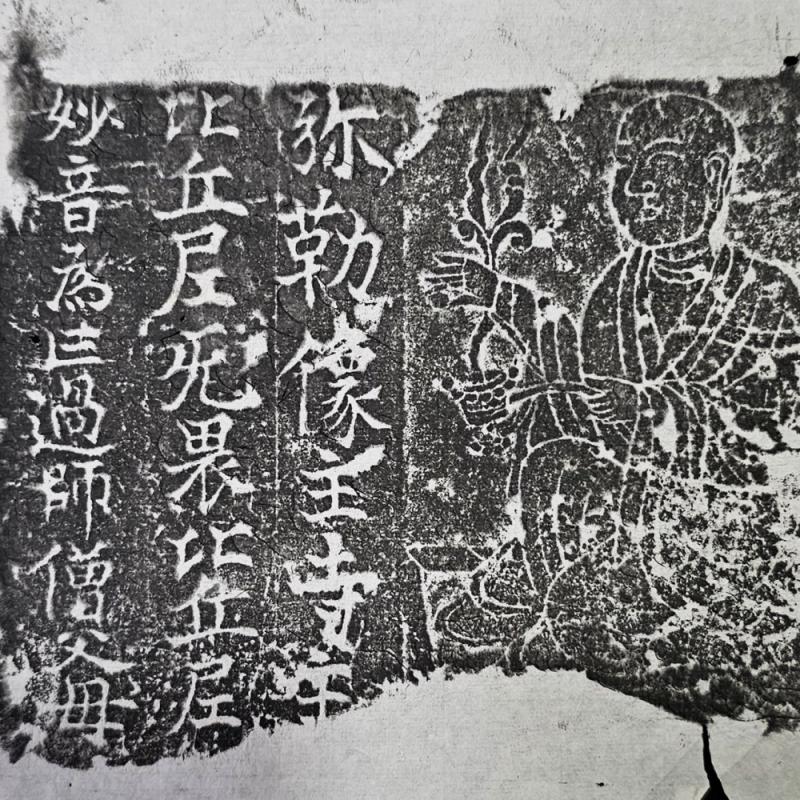 弥勒像主寺主
比丘尼无畏比丘尼
妙音為亡過師僧父母